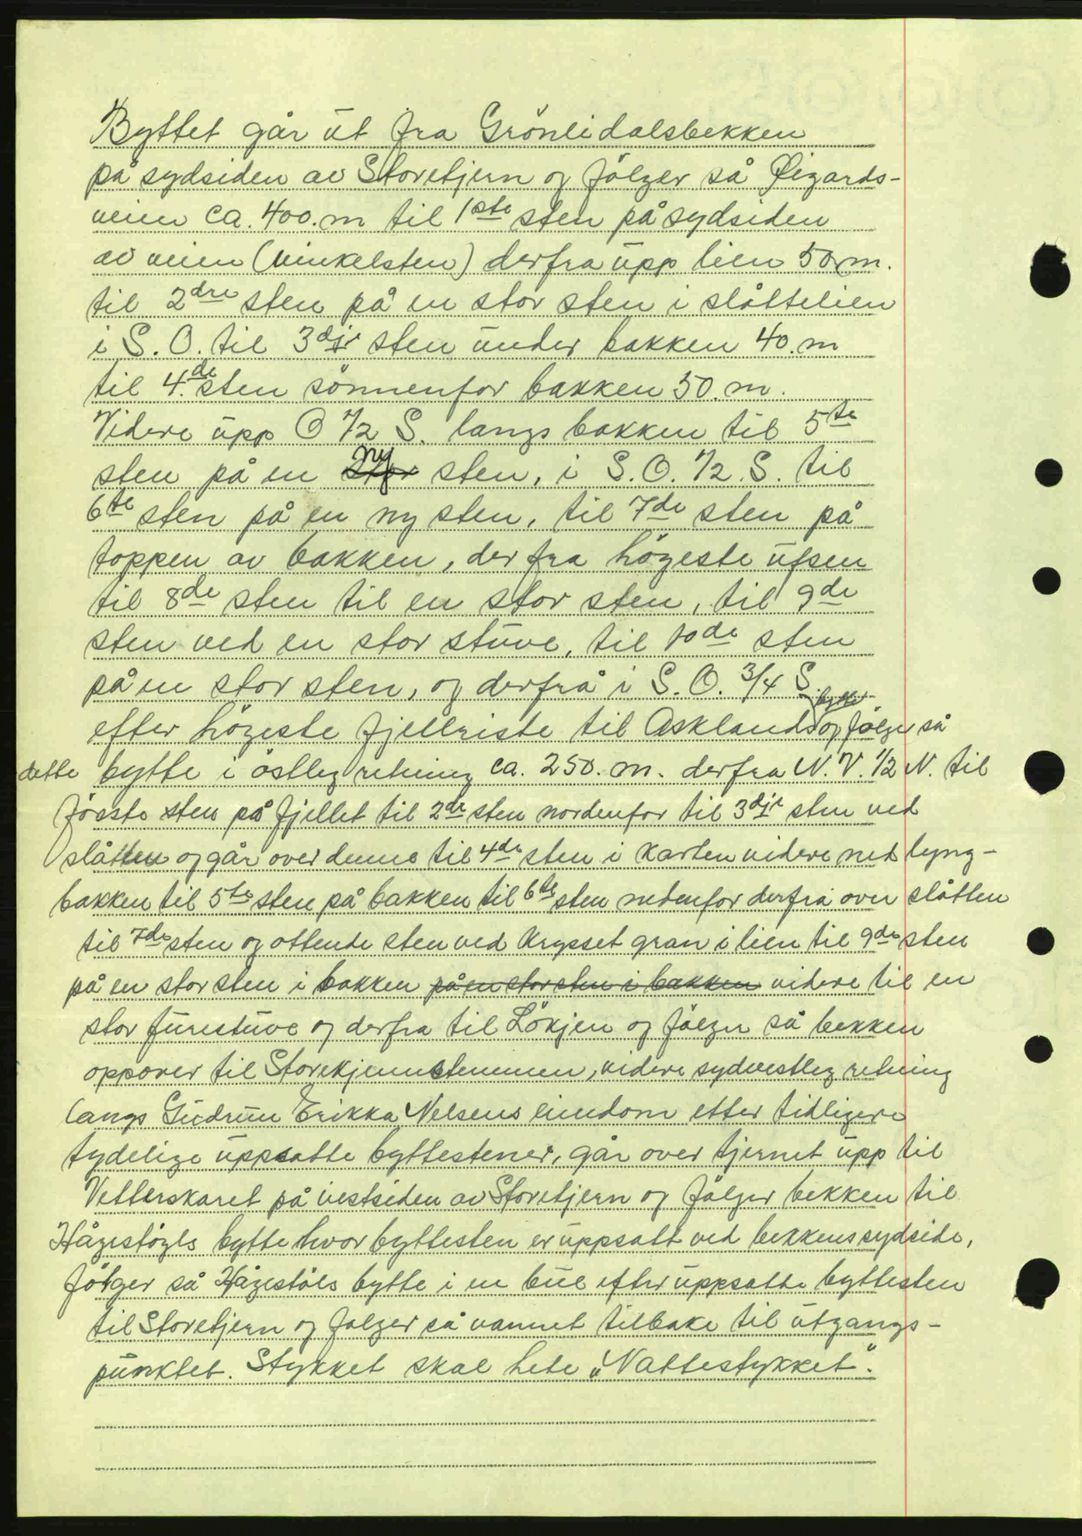 Byttet går ut fra Grönlidalsbekken
på sydsiden av Storetjern og fölger så Øigards-
veien ca. 400. m til 1ste sten på sydsiden
av veien (vinkelsten) derfra upp lien 50 m.
til 2dre sten på en stor sten i slåttelien
i S. O. til 3dje sten under bakken 40. m
til 4.de sten sönnenfor bakken 50. m.
Videre upp O 1/2 S. langs bakken til 5te
sten på en ny sten, i S. O. 1/2. S. til
6te sten på en ny sten, til 7de sten på
toppen av bakken, der fra högeste ufsen
til 8de sten til en stor sten, til 9de
sten ved en stor stuve, til 10de sten
på en stor sten, og derfrå i S. O. 3/4 S
efter högeste fjellriste til Asklands bytte og fölger så
dette bytte i östleg retning ca. 250. m. derfra N. V. 1/2 N. til
förste sten på fjellet til 2de sten nordenfor til 3dje sten ved
slåtten og går over denne til 4de sten i kanten videre ned lyng-
bakken til 5te sten på bakken til 6te sten nedenfor derfra over slåtten
til 7de sten og ottende sten ved krysset gran i lien til 9de sten
på en stor sten i bakken på en stor sten i bakken videre til en
stor furestuve og derfra til Lökjen og fölger så bekken
oppover til Storekjennstemmen, videre sydvestleg retning
langs Gudrun Erikka Nelsens eiendom etter tidligere
tydelige uppsatte byttestener, går over tjernet upp til
Vetterskaret på vestsiden av Storetjern og fölger bekken til
Hågestögls bytte hvor byttesten er uppsatt ved bekkens sydside,
fölger så Hågestöls bytte i en bue efter uppsatte byttesten
til Storetjern og fölger så vannet tilbake til utgangs-
punktet. Stykket skal hete „Nattestykket".